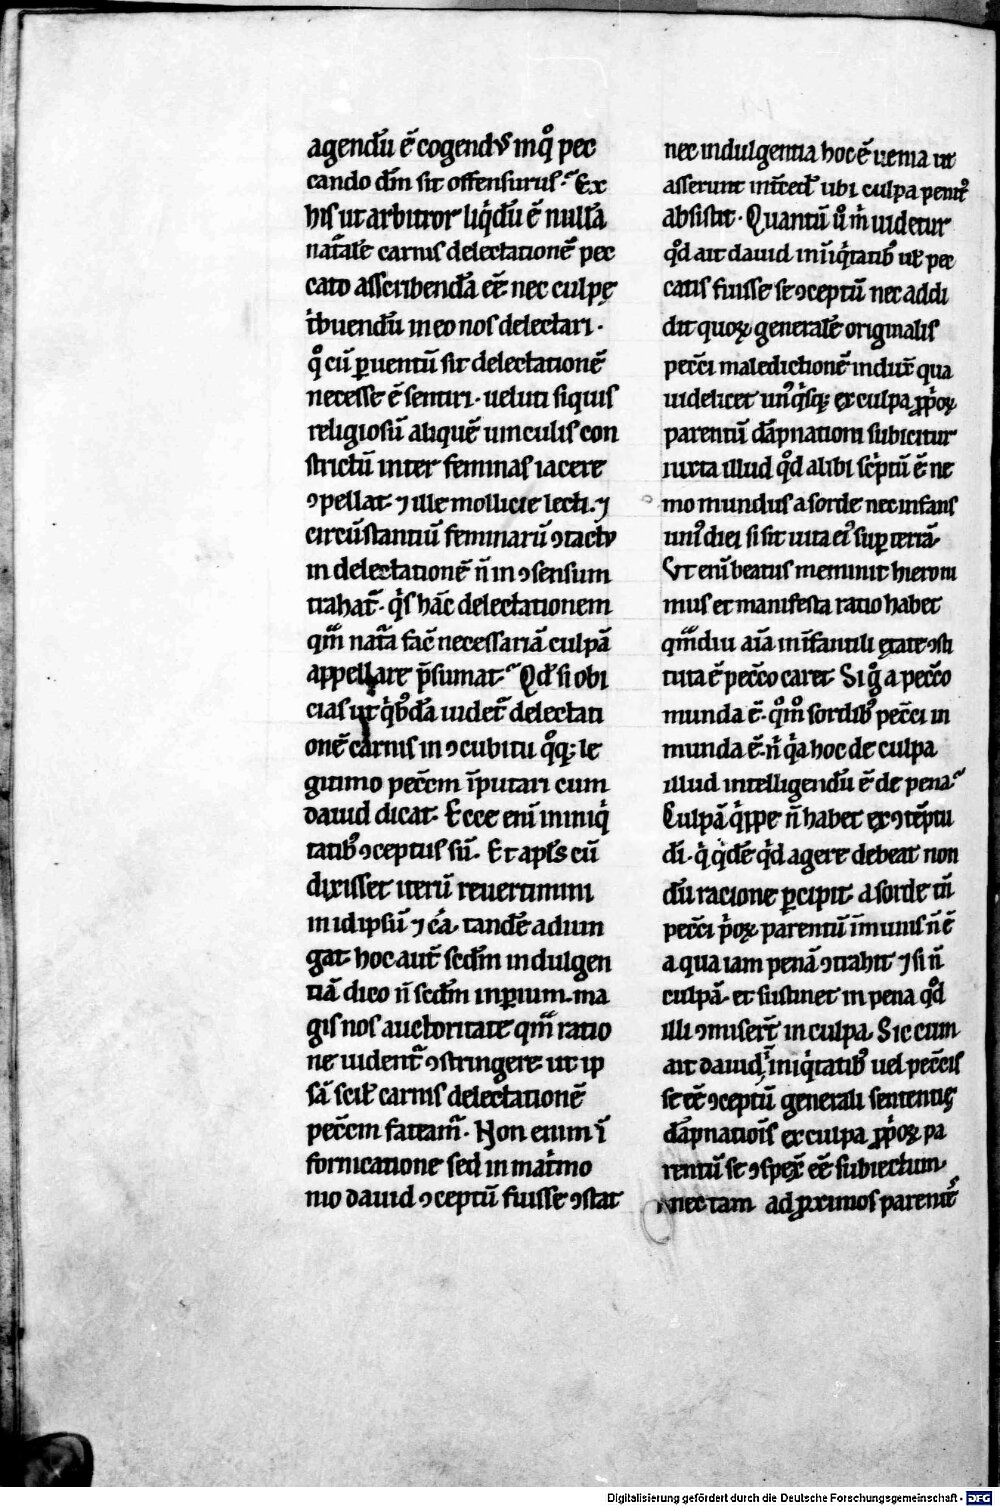 agendū ē cogendū inq̊ pec
cando dm̄ sit offensurus. Ex
his ut arbitror liq̇dū ē nullā
nat̄alē carnis delectationē pec
cato asscribendā eē nec culpę
t̍buendū in eo nos delectari.
q̊ cū ꝑuentū sit delectationē
necesse ē sentiri. ueluti siquis
religiosū aliquē uinculis con
strictū inter feminas iacere
ꝯpellat. ⁊ ille mollicie lecti. ⁊
circūstantiū feminarū ꝯtactu
in delectationē n̄ in ꝯsensum
trahat᷑. q̍s hāc delectationem
qm̄ nat᷑a fac̄ necessariā culpā
appellare p̄sumat. Qd̄ si obi
cias ut q̍bꝰdā uidet᷑ delectati
onē carnis in ꝯcubitu q̊qꝫ le
gitimo pecc̄m īputari cum
dauid dicat. Ecce enī in iniq̍
tatibꝰ ꝯceptus sū. Et apl̄s cū
dixisset iterū reuertimini
in idipsū ⁊ c̄a. tandē adiun
gat hoc aut̄ scd̄m indulgen
tiā dico n̄ scd̄m inꝑium. ma
gis nos auctoritate qm̄ ratio
ne uident᷑ ꝯstringere. ut ip
sā scil̄ carnis delectationē
pecc̄m fateam᷑. Non enim ī
fornicatione sed in mat̍mo
nio dauid ꝯceptū fuisse ꝯstat
nec indulgentia hoc ē uenia ut
asserunt int̄ced̄ ubi culpa penitꝰ
absistit. Quantū ū m̍ uidetur
qd̊ ait dauid in īiq̍tatibꝰ ul̄ pec
catis fuisse se ꝯceptū nec addi
dit quoꝝ generalē originalis
pecc̄i maledictionē indux̄ qua
uidelicet unꝰq̍sqꝫ ex culpa ꝓp̍oꝝ
parentū dāpnationi subicitur
iuxta illud qd̊ alibi sc̍ptū ē ne
mo mundus a sorde nec infans
unꝰ diei si sit uita eiꝰ suꝑ terrā.
Vt enī beatus meminit hieroni
mus et manifesta ratio habet
qm̄diu aīa in īfantili ętate ꝯsti
tuta ē pecc̄o caret. Si g̊ a pecc̄o
munda ē. q̊m̊ sordibꝰ pecc̄i in
munda ē. n̄ q̍a hoc de culpa
illud intelligendū ē de pena.
Culpā q̍ppe n̄ habet ex ꝯtēptu
di. q̍ q̍dē q̍d agere debeat non
dū racione ꝑcipit. a sorde tn̄
pecc̄i p̍oꝝ parentū īmunis n̄ ē
a qua iam penā ꝯtrahit ⁊ si n̄
culpā. et sustinet in pena qd̊
illi ꝯmisert̄ in culpa. Sic cum
ait dauid in iniq̍tatibꝰ uel pecc̄is
se eē ꝯceptū generali sententię
dāpnatiōis ex culpa ꝓp̍oꝝ pa
rentū se ꝯspex̄ eē subiectum.
nec tam ad ꝓximos parentes
Digitalisierung gefördert durch die Deutsche Forschungsgemeinschaft - DFG